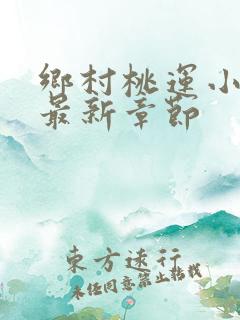 鄉村桃運小
最新章節
東方逑行
未任同意禁止转载